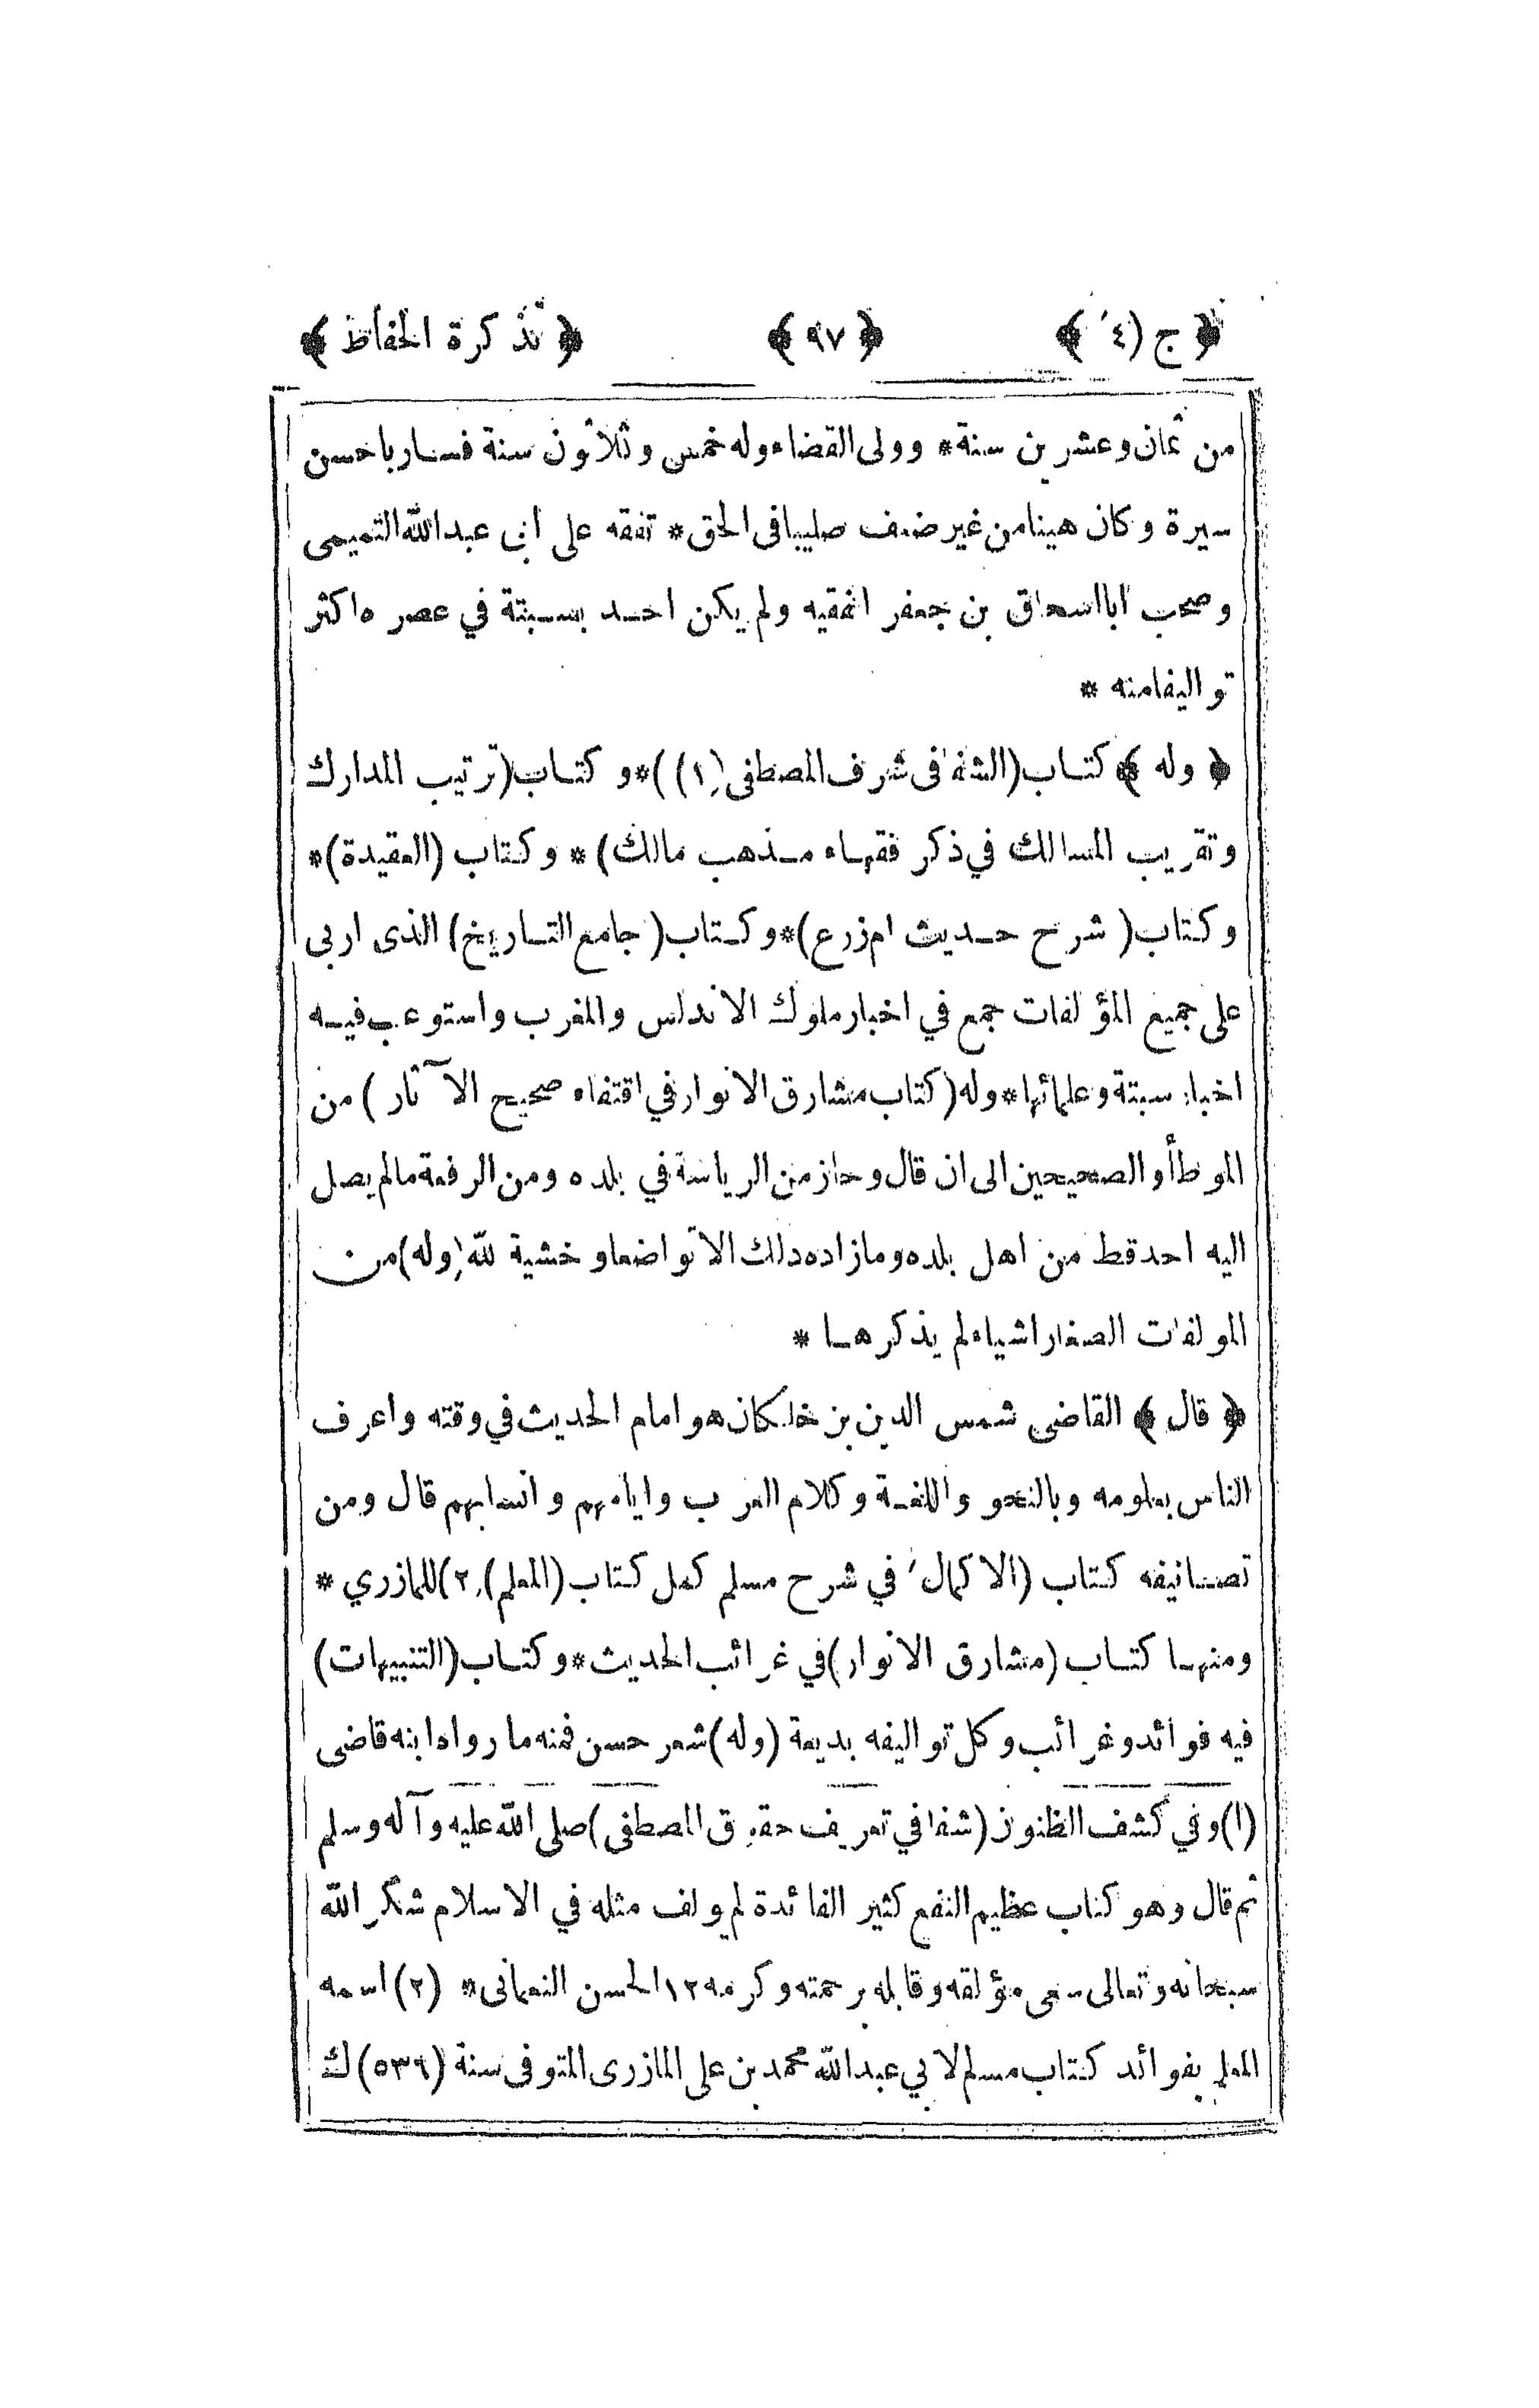 ﴿ ج (٤) ﴾ ﴿ ٩٧ ﴾ ﴿ تذكرة الحفاظ ﴾
من ثمان وعشرين سنة * وولى القضاء وله خمس وثلاثون سنة فسار باحسن
سيرة وكان هينا من غير ضعف صليبا فى الحق * تفقه على ابى عبد الله التميمى
وصحب ابا اسحاق بن جعفر الفقيه ولم يكن احد بسبتة في عصره اكثر
تواليفا منه *
﴿ وله ﴾ كتاب (الشفا فى شرف المصطفى (١)) * وكتاب (ترتيب المدارك
وتقريب المسالك في ذكر فقهاء مذهب مالك) * وكتاب (العقيدة) *
وكتاب (شرح حديث ام زرع) * وكتاب (جامع التاريخ) الذى اربى
على جميع المؤلفات جمع في اخبار ملوك الاندلس والمغرب واستوعب فيه
اخبار سبتة وعلمائها * وله (كتاب مشارق الانوار في اقتفاء صحيح الآثار) من
الموطأ والصحيحين الى ان قال وحاز من الرياسة في بلده ومن الرفعة مالم يصل
اليه احد قط من اهل بلده ومازاده ذلك الا تواضعا وخشية لله (وله) من
المولفات الصغار اشياء لم يذكرها *
﴿ قال ﴾ القاضى شمس الدين بن خلكان هو امام الحديث في وقته واعرف
الناس بعلومه وبالنحو واللغة وكلام العرب وايامهم وانسابهم قال ومن
تصانيفه كتاب (الاكمال) في شرح مسلم كمل كتاب (المعلم) (٢) للمازري *
ومنها كتاب (مشارق الانوار) في غرائب الحديث * وكتاب (التنبيهات)
فيه فوائد وغرائب وكل تواليفه بديعة (وله) شعر حسن فمنه ما رواه ابنه قاضى
(١) وفي كشف الظنون (شفا في تعريف حقوق المصطفى) صلى الله عليه وآله وسلم
ثم قال وهو كتاب عظيم النفع كثير الفائدة لم يولف مثله في الاسلام شكر الله
سبحانه وتعالى سعى مؤلفه وقابله برحمته وكرمه ١٢ الحسن النعمانى * (٢) اسمه
المعلم بفوائد كتاب مسلم لابي عبد الله محمد بن على المازرى المتوفى سنة (٥٣٦) ك